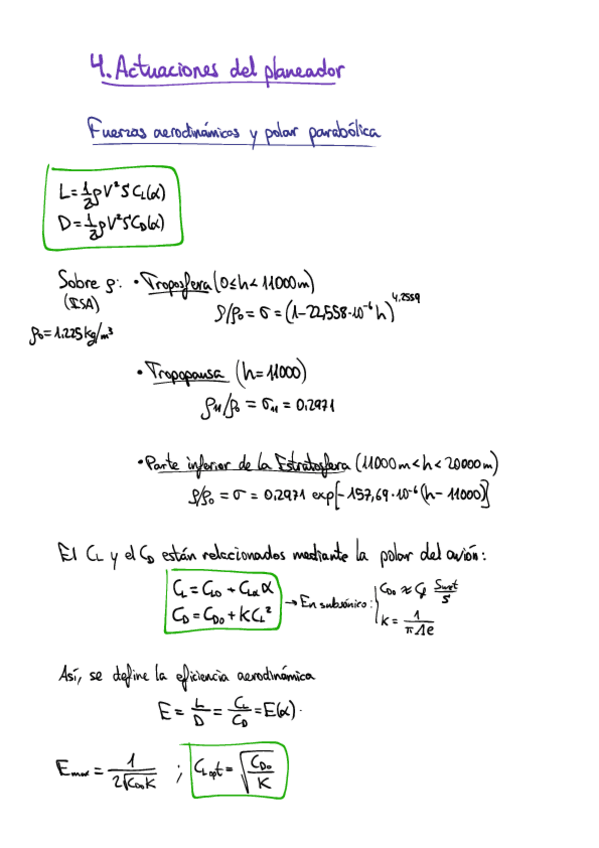 4. Actuaciones del planeador
Fuerzas aerodinámicas y polar parabólica
L = 1/2 ρV²S C_L(α)
D = 1/2 ρV²S C_D(α)
Sobre ρ: • Troposfera (0≤h<11000m)
(ISA) ρ/ρ₀ = σ = (1-22,558·10⁻⁶ h)^4,2559
ρ₀ = 1.225 kg/m³
• Tropopausa (h=11000)
ρ₁₁/ρ₀ = σ₁₁ = 0,2971
• Parte inferior de la Estratosfera (11000m<h<20000m)
ρ/ρ₀ = σ = 0,2971 exp[-157,69·10⁻⁶(h-11000)]
El C_L y el C_D están relacionados mediante la polar del avión:
C_L = C_L0 + C_Lα α
C_D = C_D0 + K C_L²
→ En subsónico: { C_D0 ≈ C_f Swet/S
K = 1/(πΛe)
Así, se define la eficiencia aerodinámica
E = L/D = C_L/C_D = E(α).
E_max = 1/(2√(C_D0 K)) ; C_L opt = √(C_D0/K)